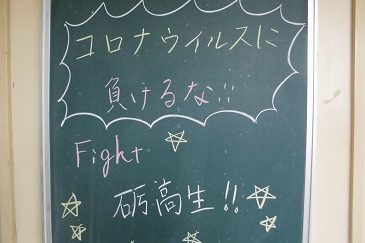 コロナウイルスに
負けるな!!
Fight
砺高生!!